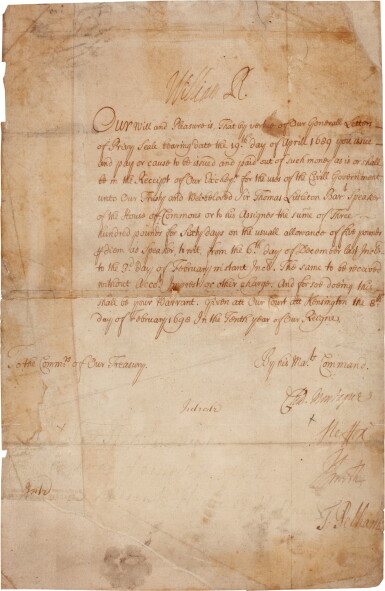 William R.
Our Will and Pleasure is, That by vertue of Our Generall Letters
of Privy Seale bearing date the 19th day of Aprill 1689 you issue
and pay or cause to be issued and paid out of such money as is or shall
be in the Receipt of Our Excheqr for the use of the Civill Government
unto Our Trusty and Welbeloved Sir Thomas Littleton Bart Speaker
of the House of Commons or to his Assignes the summe of Three
hundred pounds for Sixty days on the usuall allowance of five pounds
p diem as Speaker to
from the 6th day of December last
to the 3d day of February instant The same to be received
without Accot Imprest or other charge. And for soe doing this
shall be your Warrant. Given at Our Court att Kensington the 8th
day of February 1698 In the Tenth year of Our Reigne
To the Commrs of Our Treasury.
By his Mats Command.